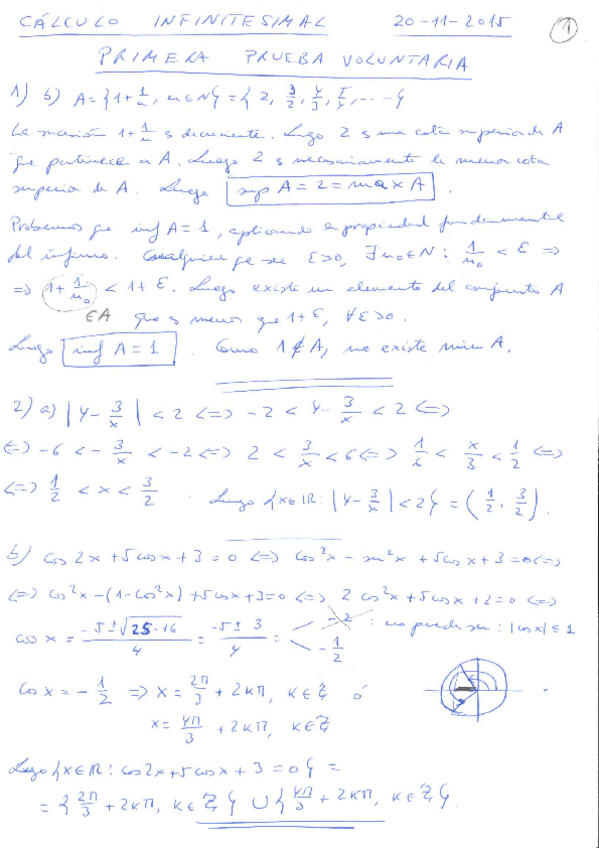 CÁLCULO INFINITESIMAL 20-11-2015 1
PRIMERA PRUEBA VOLUNTARIA
1) b) A = {1+1/n, n∈N} = {2, 3/2, 4/3, 5/4, ...}
La sucesión 1+1/n es decreciente. Luego 2 es una cota superior de A
que pertenece a A. Luego 2 es necesariamente la menor cota
superior de A. Luego sup A = 2 = max A.
Probemos que inf A = 1, aplicando la propiedad fundamental
del ínfimo. Cualquiera que sea ε>0, ∃n₀∈N: 1/n₀ < ε =>
=> 1+1/n₀ < 1+ε. Luego existe un elemento del conjunto A
∈A que es menor que 1+ε, ∀ε>0.
Luego inf A = 1. Como 1∉A, no existe min A.
2) a) |4-3/x| < 2 <=> -2 < 4-3/x < 2 <=>
<=> -6 < -3/x < -2 <=> 2 < 3/x < 6 <=> 1/6 < x/3 < 1/2 <=>
<=> 1/2 < x < 3/2. Luego {x∈ℝ: |4-3/x| < 2} = (1/2, 3/2).
b) cos 2x + 5cos x + 3 = 0 <=> cos²x - sen²x + 5cos x + 3 = 0 <=>
<=> cos²x - (1-cos²x) + 5cos x + 3 = 0 <=> 2cos²x + 5cos x + 2 = 0 <=>
cos x = (-5±√(25-16))/4 = (-5±3)/4 = -2 : no puede ser: |cos x| ≤ 1
-1/2
cos x = -1/2 => x = 2π/3 + 2kπ, k∈Z ó
x = 4π/3 + 2kπ, k∈Z
Luego {x∈ℝ: cos 2x + 5cos x + 3 = 0} =
= {2π/3 + 2kπ, k∈Z} ∪ {4π/3 + 2kπ, k∈Z}.